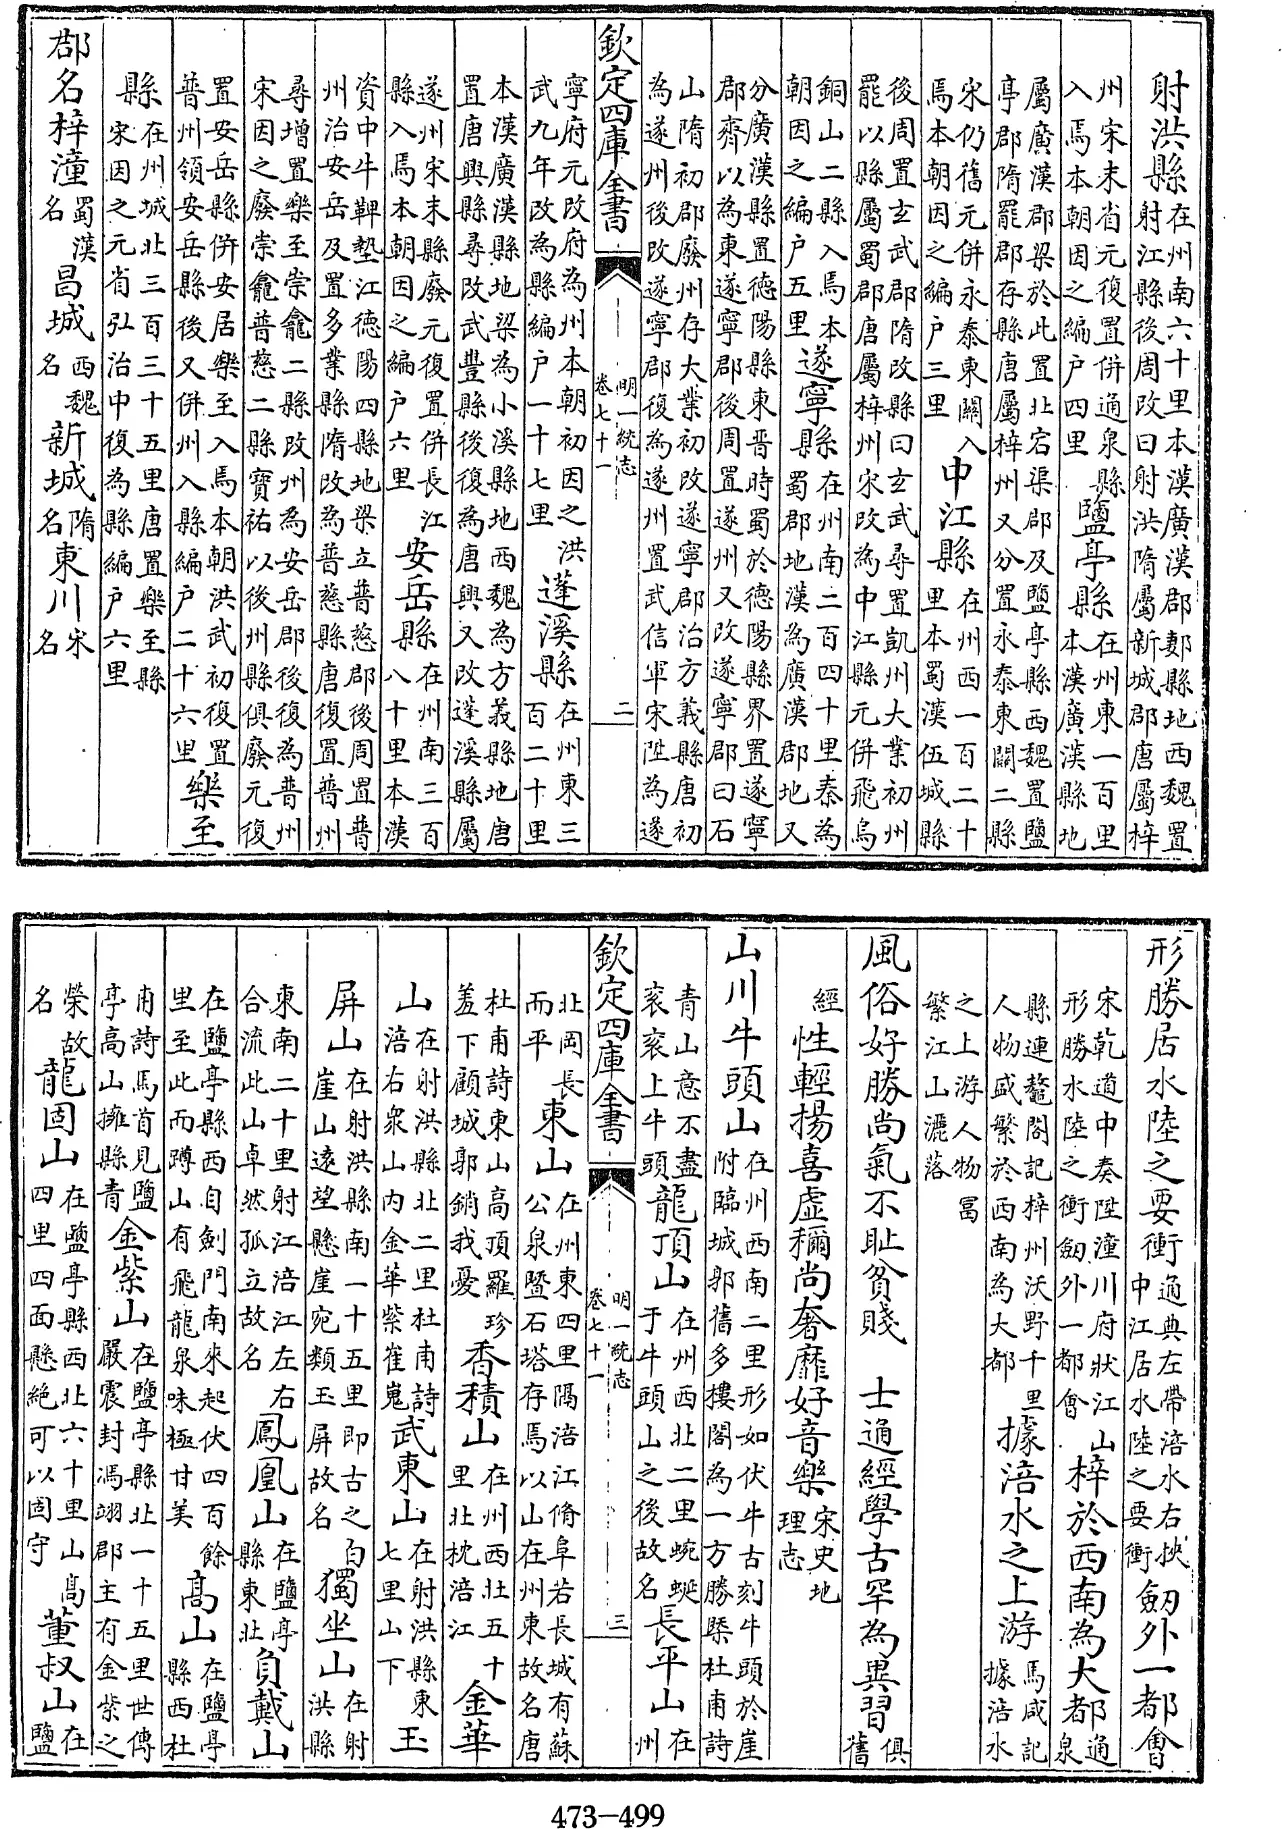 射洪縣在州南六十里本漢廣漢郡郪縣地西魏置射江縣後周改曰射洪隋屬新城郡唐屬梓
州宋末省元復置併通泉縣入焉本朝因之編户四里鹽亭縣在州東一百里本漢廣漢縣地
屬廣漢郡梁於此置北宕渠郡及鹽亭縣西魏置鹽亭郡隋罷郡存縣唐屬梓州又分置永泰東關二縣
宋仍舊元併永泰東關入焉本朝因之編户三里中江縣在州西一百二十里本蜀漢伍城縣
後周置玄武郡隋改縣曰玄武尋置凱州大業初州罷以縣屬蜀郡唐屬梓州宋改為中江縣元併飛烏
銅山二縣入焉本朝因之編户五里遂寧縣在州南二百四十里秦為蜀郡地漢為廣漢郡地又
分廣漢縣置德陽縣東晉時蜀於德陽縣界置遂寧郡齊以為東遂寧郡後周置遂州又改遂寧郡曰石
山隋初郡廢州存大業初改遂寧郡治方義縣唐初為遂州後改遂寧郡復為遂州置武信軍宋陞為遂
欽定四庫全書 明一統志卷七十一 二
寧府元改府為州本朝初因之洪武九年改為縣編户一十七里蓬溪縣在州東三百二十里
本漢廣漢縣地梁為小溪縣地西魏為方義縣地唐置唐興縣尋改武豐縣後復為唐興又改蓬溪縣屬
遂州宋末縣廢元復置併長江縣入焉本朝因之編户六里安岳縣在州南三百八十里本漢
資中牛鞞墊江德陽四縣地梁立普慈郡後周置普州治安岳及置多業縣隋改為普慈縣唐復置普州
尋增置樂至崇龕二縣改州為安岳郡後復為普州宋因之廢崇龕普慈二縣寶祐以後州縣俱廢元復
置安岳縣併安居樂至入焉本朝洪武初復置普州領安岳縣後又併州入縣編户二十六里樂至
縣在州城北三百三十五里唐置樂至縣宋因之元省弘治中復為縣編户六里
郡名梓潼蜀漢名昌城西魏名新城隋名東川宋名
形勝居水陸之要衝通典左帶涪水右挾中江居水陸之要衝劔外一都會
宋乾道中奏陞潼川府狀江山形勝水陸之衝劔外一都會梓於西南為大都通泉
縣連鼇閣記梓州沃野千里人物盛繁於西南為大都據涪水之上游馬咸記據涪水
之上游人物畐繁江山灑落
風俗好勝尚氣不耻貧賤 士通經學古罕為異習俱舊
經性輕揚喜虛稱尚奢靡好音樂宋史地理志
山川牛頭山在州西南二里形如伏牛古刻牛頭於崖附臨城郭舊多樓閣為一方勝槩杜甫詩
青山意不盡衮衮上牛頭龍頂山在州西北二里蜿蜒于牛頭山之後故名長平山在州
欽定四庫全書 明一統志卷七十一 三
北岡長而平東山在州東四里隔涪江脩阜若長城有蘇公泉暨石塔存焉以山在州東故名唐
杜甫詩東山高頂羅珍羞下顧城郭銷我憂香積山在州西北五十里北枕涪江金華
山在射洪縣北二里杜甫詩涪右衆山内金華紫崔嵬武東山在射洪縣東七里山下玉
屏山在射洪縣南一十五里即古之白崖山遠望懸崖宛類玉屏故名獨坐山在射洪縣
東南二十里射江涪江左右合流此山卓然孤立故名鳳凰山在鹽亭縣東北負戴山
在鹽亭縣西自劍門南來起伏四百餘里至此而蹲山有飛龍泉味極甘美高山在鹽亭縣西杜
甫詩馬首見鹽亭高山擁縣青金紫山在鹽亭縣北一十五里世傳嚴震封馮翊郡主有金紫之
榮故名龍固山在鹽亭縣西北六十里山高四里四面懸絶可以固守董叔山在鹽
473-499